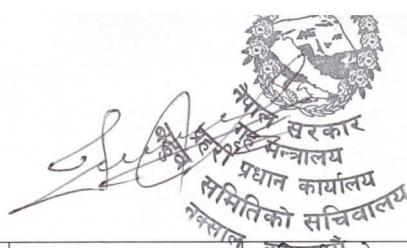 नेपाल सरकार
गृह मन्त्रालय
प्रहरी प्रधान कार्यालय
समितिको सचिवालय
नक्साल